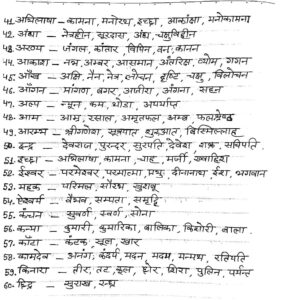 41. अभिलाषा - कामना, मनोरथ, इच्छा, आकांक्षा, मनोकामना
42. अंधा - नेत्रहीन, सूरदास, अंध, चक्षुविहीन
43. अरण्य - जंगल, कांतार, विपिन, वन, कानन
44. आकाश - नभ, अम्बर, आसमान, अंतरिक्ष, व्योम, गगन
45. आँख - अक्षि, नैन, नेत्र, लोचन, दृष्टि, चक्षु, विलोचन
46. आंगन - प्रांगण, बगर, अजिरा, अंगना, सहन
47. अल्प - न्यून, कम, थोडा, अपर्याप्त
48. आम - आम्र, रसाल, अमृतफल, अम्ब, फलश्रेष्ठ
49. आरम्भ - श्रीगणेश, सूत्रपात, शुरुआत, बिस्मिल्लाह
50. इन्द्र - देवराज, पुरन्दर, सुरपति, देवेश, शक्र, सचिपति
51. इच्छा - अभिलाषा, कामना, चाह, मर्जी, ख्वाहिश
52. ईश्वर - परमेश्वर, परमात्मा, प्रभु, दीनानाथ, ईश, भगवान
53. महक - परिमल, सौरभ, खुशबू
54. ऐश्वर्य - वैभव, सम्पता, समृद्धि
55. कंचन - सुवर्ण, स्वर्ण, सोना
56. कन्या - कुमारी, कुमारिका, बालिका, किशोरी, बाला.
57. काँटा - कंटक, सूल, खार
58. कामदेव - अनंग, कंदर्प, मदन, मदन, मन्मथ, रतिपति
59. किनारा - तीर, तट, कूल, छोर, सिरा, पुलिन, पर्यन्त
60. छिद्र - सुराख, रन्ध्र